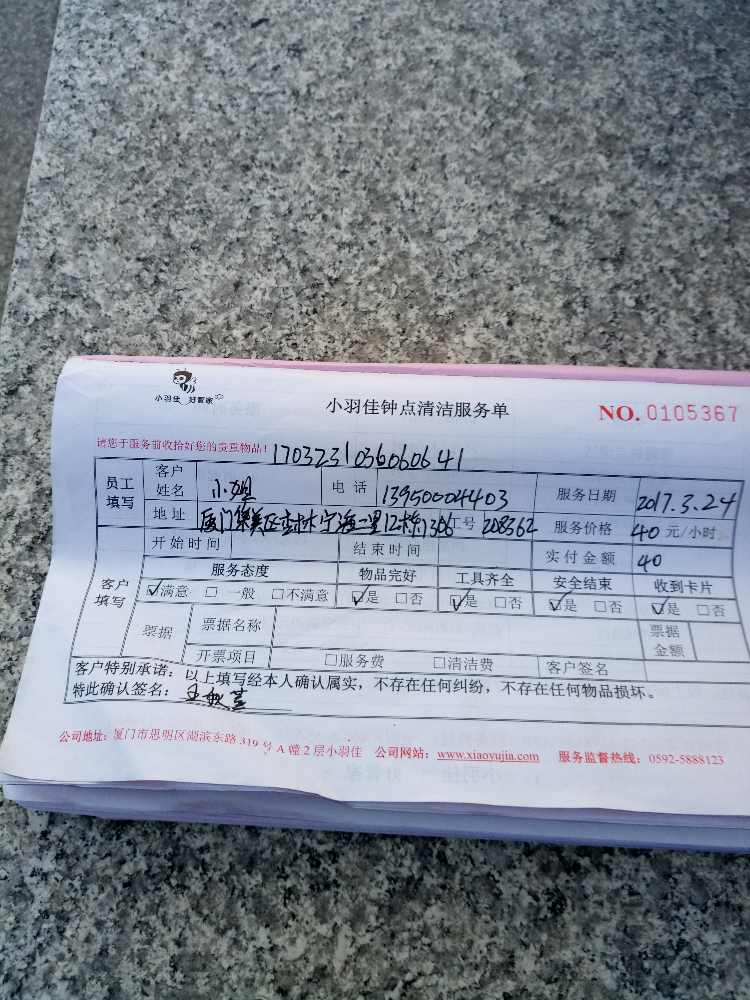 小羽佳 好管家
小羽佳钟点清洁服务单
NO. 0105367
请您于服务前收拾好您的贵重物品! 1703231036060641
员工填写 客户姓名 小姐 电话 13950004403 服务日期 2017.3.24
地址 厦门集美区杏林宁海一里12栋306 工号 208362 服务价格 40 元/小时
开始时间 结束时间 实付金额 40
客户填写 服务态度 物品完好 工具齐全 安全结束 收到卡片
☑满意 □一般 □不满意 ☑是 □否 ☑是 □否 ☑是 □否 ☑是 □否
票据 票据名称 票据金额
开票项目 □服务费 □清洁费 客户签名
客户特别承诺：以上填写经本人确认属实，不存在任何纠纷，不存在任何物品损坏。
特此确认签名：王
公司地址：厦门市思明区湖滨东路 319 号 A 幢 2 层小羽佳 公司网站：www.xiaoyujia.com 服务监督热线：0592-5888123